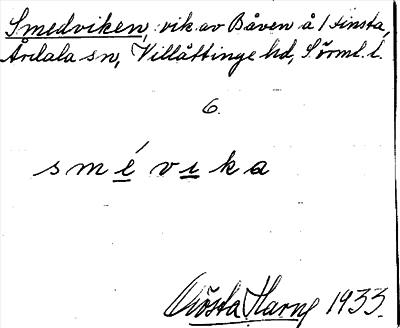 Smedviken, vik av Båven å Hinsta,
Årdala sn, Villåttinge hd, Sörml. l.
6.
smévika
Gösta Harne 1933.